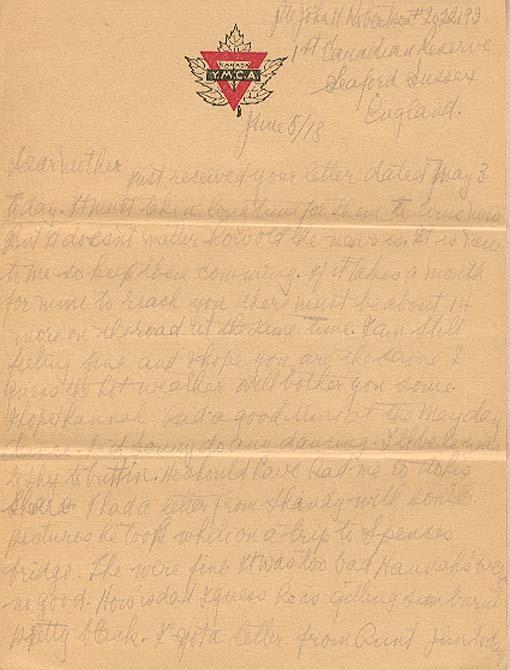 Pte John H Robertson # 2022193
1st Canadian Reserve
Seaford Sussex
England.
CANADA
Y.M.C.A.
June 5/18
Dear Mother
Just received your letter dated May 3
today. It must take a long time for them to come now
But it doesn't matter how old the news is. It is new
to me so keep them comming. If it takes a month
for mine to reach you there must be about 14
more on the road at the same time. I am still
feeling fine and I hope you are the same I
guess the hot weather will bother you some.
I hope Hannah had a good time at the May day
dance. Did do any dancing. I'll bet he was
to shy to butt in. He should have had me to do his
share. I had a letter from Shandy with some
pictures he took while on a trip to Spences
bridge. The were fine. It was too bad Hannah's were
no good. How is dad I guess he is getting sun burnt
pretty black. I got a letter from Aunt Jim today